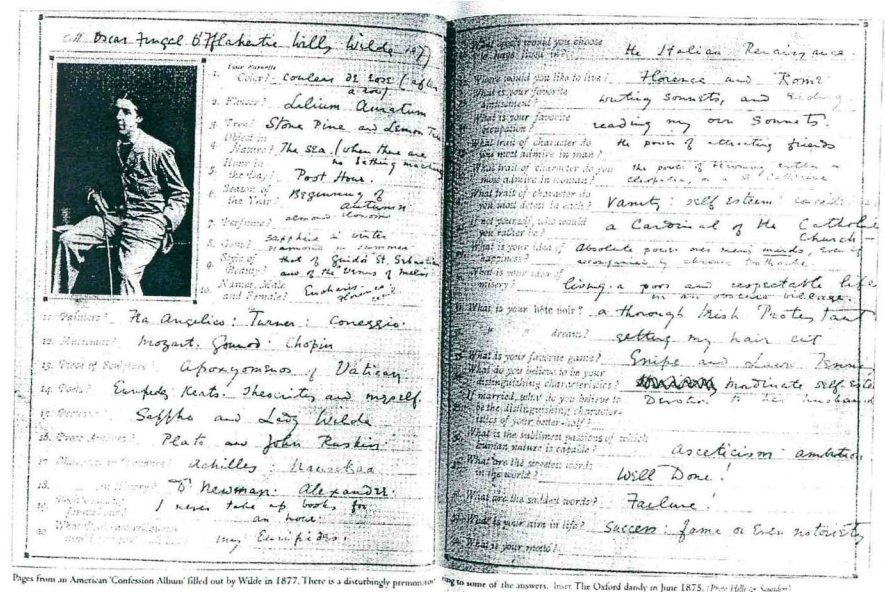 Oscar Fingal O'Flahertie Wills Wilde
Your Favorite
1. Color? Couleur de rose
2. Flower? Lilium Auratum
3. Tree? Stone Pine and Lemon Tree
4. Object in
Nature? The sea (when there are
no bathing machines
5. Hour in
the Day? Post Hour.
6. Season of
the Year? Beginning of
Autumn
7. Perfume? almond blossom
8. Gem? Sapphire in winter
diamond in summer
9. Style of
Beauty? that of Guido's St. Sebastian
and of the Venus of Melos
10. Names, Male
and Female? Eucharis
11. Painters? Fra Angelico: Turner: Correggio.
12. Musicians? Mozart. Gounod: Chopin
13. Piece of Sculpture? Apoxyomenos of Vatican
14. Poets? Euripides Keats. Theocritus and myself.
15. Poetesses? Sappho and Lady Wilde
16. Prose Authors? Plato and John Ruskin
17. Character in Romance? Achilles: Nausikaa
18. in History? Dr Newman: Alexander.
19. I never take up books for
an hour.
20. my Euripides.
What would you choose
the Italian Renaissance.
Where would you like to live? Florence and Rome
What is your favorite
amusement? writing sonnets, and reading
What is your favorite
occupation? reading my own Sonnets.
What trait of character do
you most admire in man? the power of attracting friends
What trait of character do you
most admire in woman? the power of
Cleopatra, or a St Catherine
What trait of character do
you most detest in each? Vanity: self esteem
If not yourself, who would
you rather be? a Cardinal of the Catholic
Church
What is your idea of
happiness? Absolute power over men's minds, even if
accompanied by chronic toothache.
What is your idea of
misery? living a poor and respectable life
in an obscure village.
What is your bête noir? a thorough Irish Protestant
" " dream? getting my hair cut
What is your favorite game? Snipe and Lawn Tennis
What do you believe to be your
distinguishing characteristics? inordinate self esteem
If married, what do you believe to
be the distinguishing character-
istics of your better-half? Devotion to her husband
What is the sublimest passions of which
human nature is capable? asceticism: ambition
What are the sweetest words
in the world? Well Done!
What are the saddest words? Failure!
What is your aim in life? Success: fame or even notoriety
What is your motto?
Pages from an American 'Confession Album' filled out by Wilde in 1877. There is a disturbingly premonitory ring to some of the answers. Inset The Oxford dandy in June 1875. (Photo Hills & Saunders)